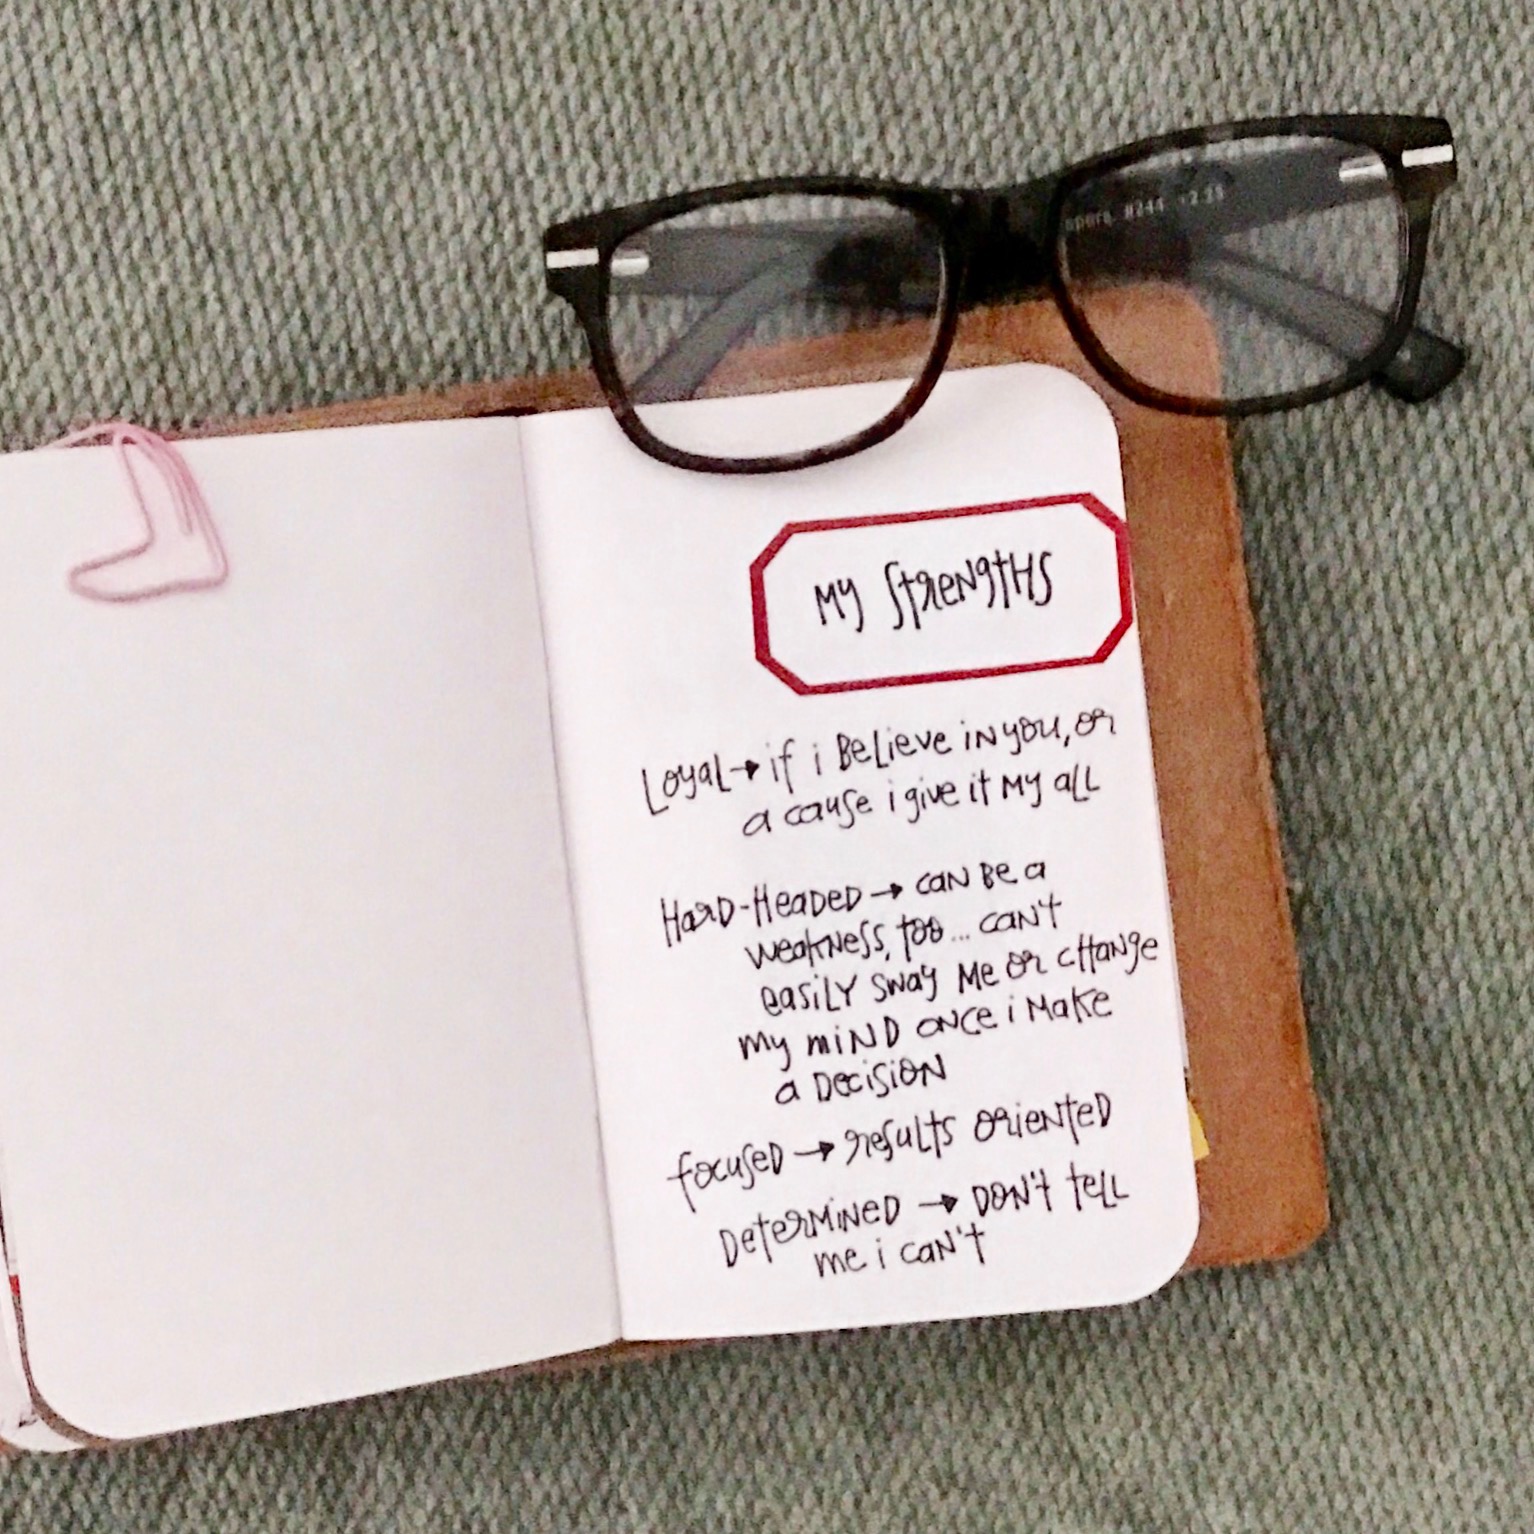 #244 +2.25
My Strengths
Loyal→ if i Believe in you, or
a cause i give it my all
Hard-Headed → can Be a
weakness, too... can't
easily sway me or change
my mind once i make
a Decision
focused → results oriented
Determined → Don't tell
me i can't